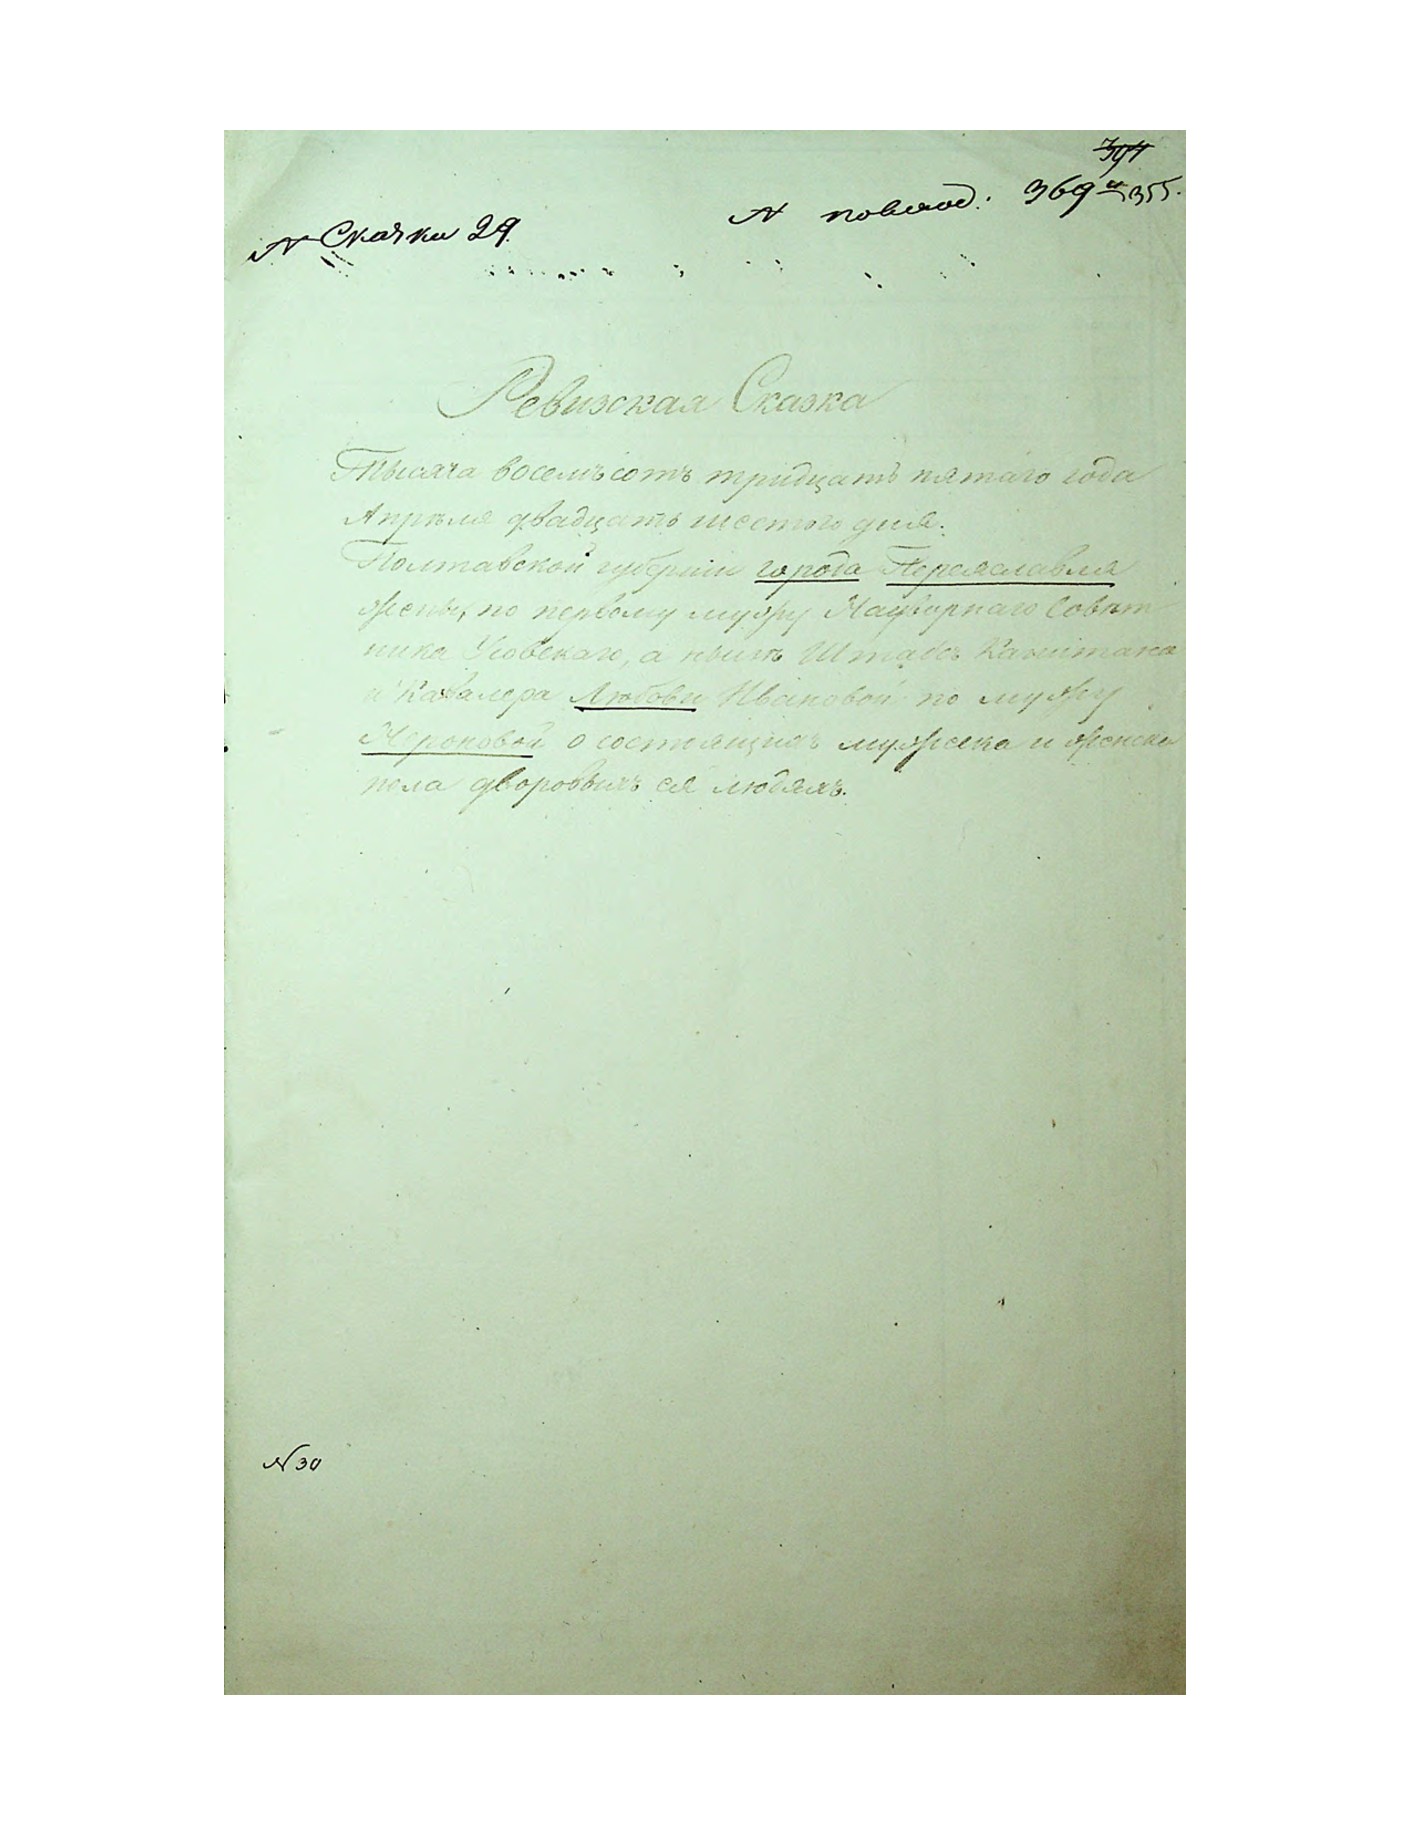 394
№ повсмод. 369 и 355.
№ Скаски 29.
Ревизская Сказка
Тысяча восемъсотъ тридцать пятаго года
Апреля двадцать шестого дня.
Полтавской губерніи города Переяславля
жены, по первому мужу Надворнаго Совет
ника Усовскаго, а ныне Штабсъ Капитана
и Кавалера Любови Ивановой по мужу
Нероновой о состоящихъ мужеска и женска
пола дворовыхъ ея людяхъ.
№ 30